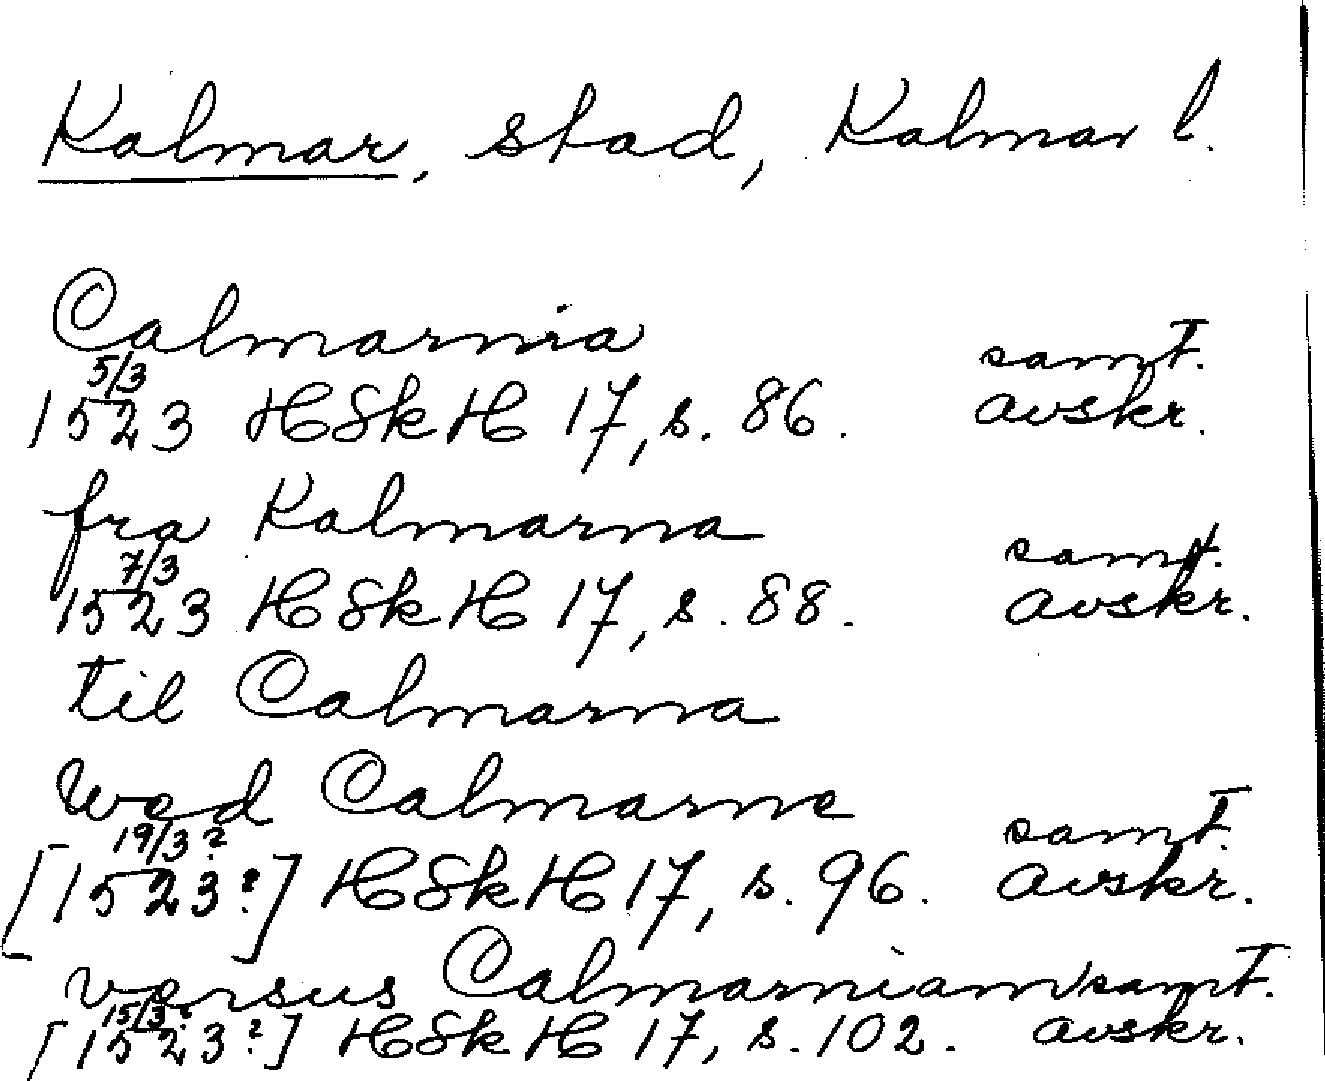 Kalmar, stad, Kalmar l.
Calmarnia
5/3 samt.
1523 HSkH 17, s. 86. avskr.
fra Kalmarna
7/3 samt.
1523 HSkH 17, s. 88. avskr.
til Calmarna
wed Calmarne
19/3? samt.
[1523?] HSkH 17, s. 96. avskr.
versus Calmarniam samt.
15/3?
[1523?] HSkH 17, s. 102. avskr.